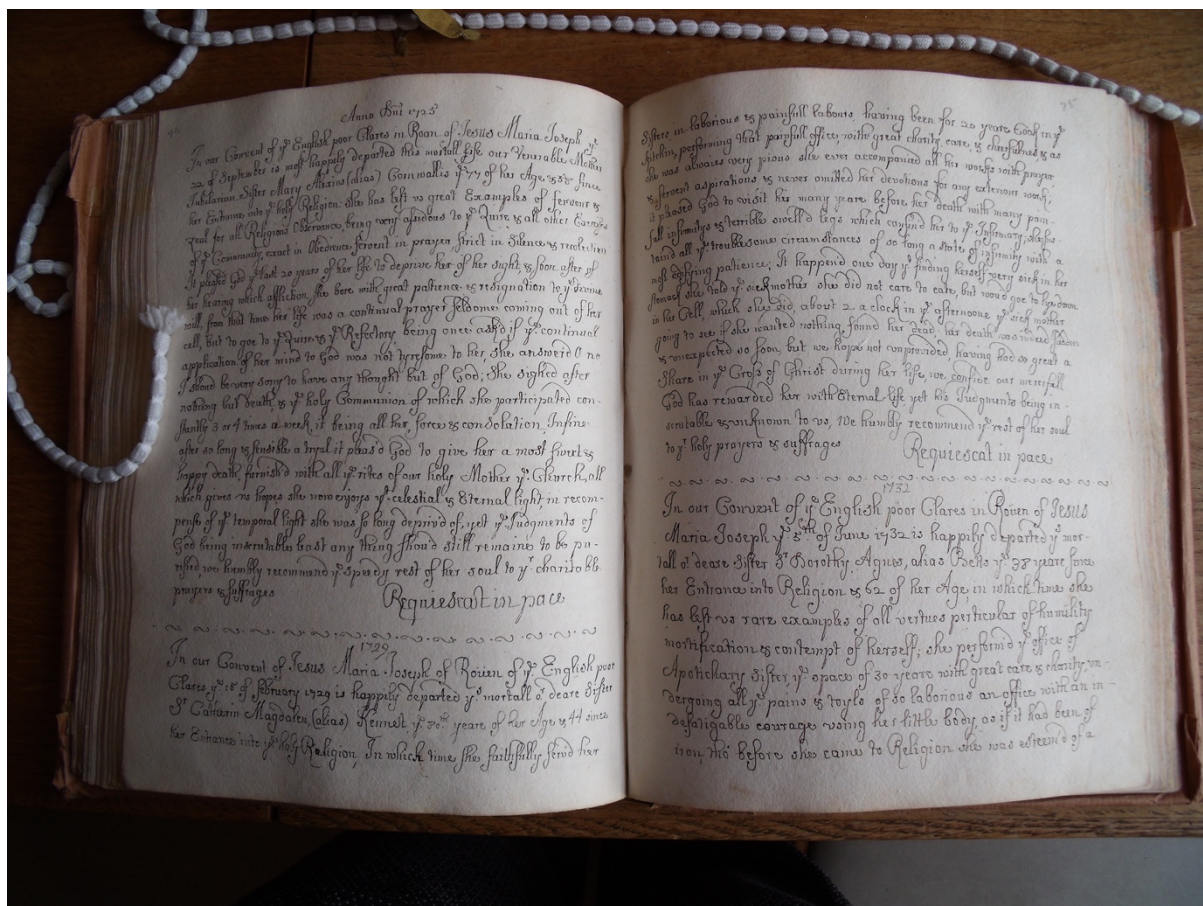 Anno Dni 1725
In our Convent of yᵉ English poor Clares in Roan of Jesus Maria Joseph yᵉ
22 of September is most happily departed this mortall life our Venerable Mother
Jubilarian Sister Mary (alias) Cornwallis yᵉ 77 of her Age & 58 since
her Entrance into yᵉ holy Religion she has left vs great Examples of fervour &
zeal for all Religious Observance, being very assidous to yᵉ Quire & all other
of yᵉ Community, exact in Obedience fervent in prayer strict in Silence &
It pleased God yᵉ last 20 years of her life to deprive her of her sight & soon after of
her hearing which affliction she bore with great patience & resignation to yᵉ divine
will, from that time her life was a continual prayer seldome coming out of her
cell, but to goe to yᵉ Quire & yᵉ Refectory being once ask'd if yᵉ continual
application of her mind to God was not tyresome to her, she answer'd O no
I should be very sorry to have any thought but of God; She sighed after
nothing but death, & yᵉ holy Communion of which she participated con-
stantly 3 or 4 times a week, it being all her force & consolation, Infine
after so long & sensible a tryal it pleas'd God to give her a most sweet &
happy death, furnish'd with all yᵉ rites of our holy Mother yᵉ Church, all
which gives vs hopes she now enjoys yᵉ celestial & Eternal light, in recom-
pense of yᵉ temporal light she was so long depriv'd of, yet yᵉ Judgments of
God being inscrutable least any thing should still remaine to be pu-
rified, we humbly recommend yᵉ speedy rest of her soul to yʳ charitable
prayers & suffrages Requiescat in pace
1729
In our Convent of Jesus Maria Joseph of Roüen of yᵉ English poor
Clares, yᵉ 18 of february 1729 is happily departed yˢ mortall oʳ deare Sister
Sʳ Catharin Magdalen, (alias) Rennelt yᵉ years of her Age & 44 since
her Entrance into yᵉ holy Religion, In which time she faithfully serv'd her
Sisters in laborious & painfull labours, having been for 20 years Cook in yᵉ
kitchin, performing that painfull office, with great charity, care, & chearfulness & as
she was always very pious she ever accompanied all her works with prayer
& fervent aspirations & never omitted her devotions for any exteriour work,
it pleased God to visit her many years before her death with many pain-
full infirmitys & terrible swell'd legs which confind her to yᵉ Infirmary, she sus-
taind all yᵉ troublesome circumstances of so long a state of infirmity with a
most edifying patience; It happend one day yᵗ finding herself very sick in her
stomack she told yᵉ sickmother she did not care to eate, but wou'd goe to lye down
in her Cell, which she did, about 2 a clock in yᵉ afternoone yᵉ sick mother
going to see if she wanted nothing, found her dead, her death was indeed suddain
& unexpected so soon, but we hope not unprovided, having had so great a
Share in yᵉ Cross of Christ during her life, we confide our mercifull
God has rewarded her with Eternal life, yet his Judgments being in-
scrutable & unknown to vs, We humbly recommend yᵉ rest of her soul
to yʳ holy prayers & suffrages Requiescat in pace
1732
In our Convent of yᵉ English poor Clares in Roüen of Jesus
Maria Joseph yᵉ 5ᵗʰ of June 1732 is happily departed yˢ mor-
tall oʳ deare Sister Sʳ Dorothy Agnes, alias Betts yᵉ 38 yeare since
her Entrance into Religion & 62 of her Age, in which time she
has left vs rare examples of all vertues perticular of humility
mortification & contempt of herself; she perform'd yᵉ office of
Apotichary Sister yᵉ space of 30 years with great care & charity un-
dergoing all yᵉ pains & toyls of so laborious an office with an in-
defatigable courage vsing her little body as if it had been of
iron, tho' before she came to Religion she was esteem'd of a